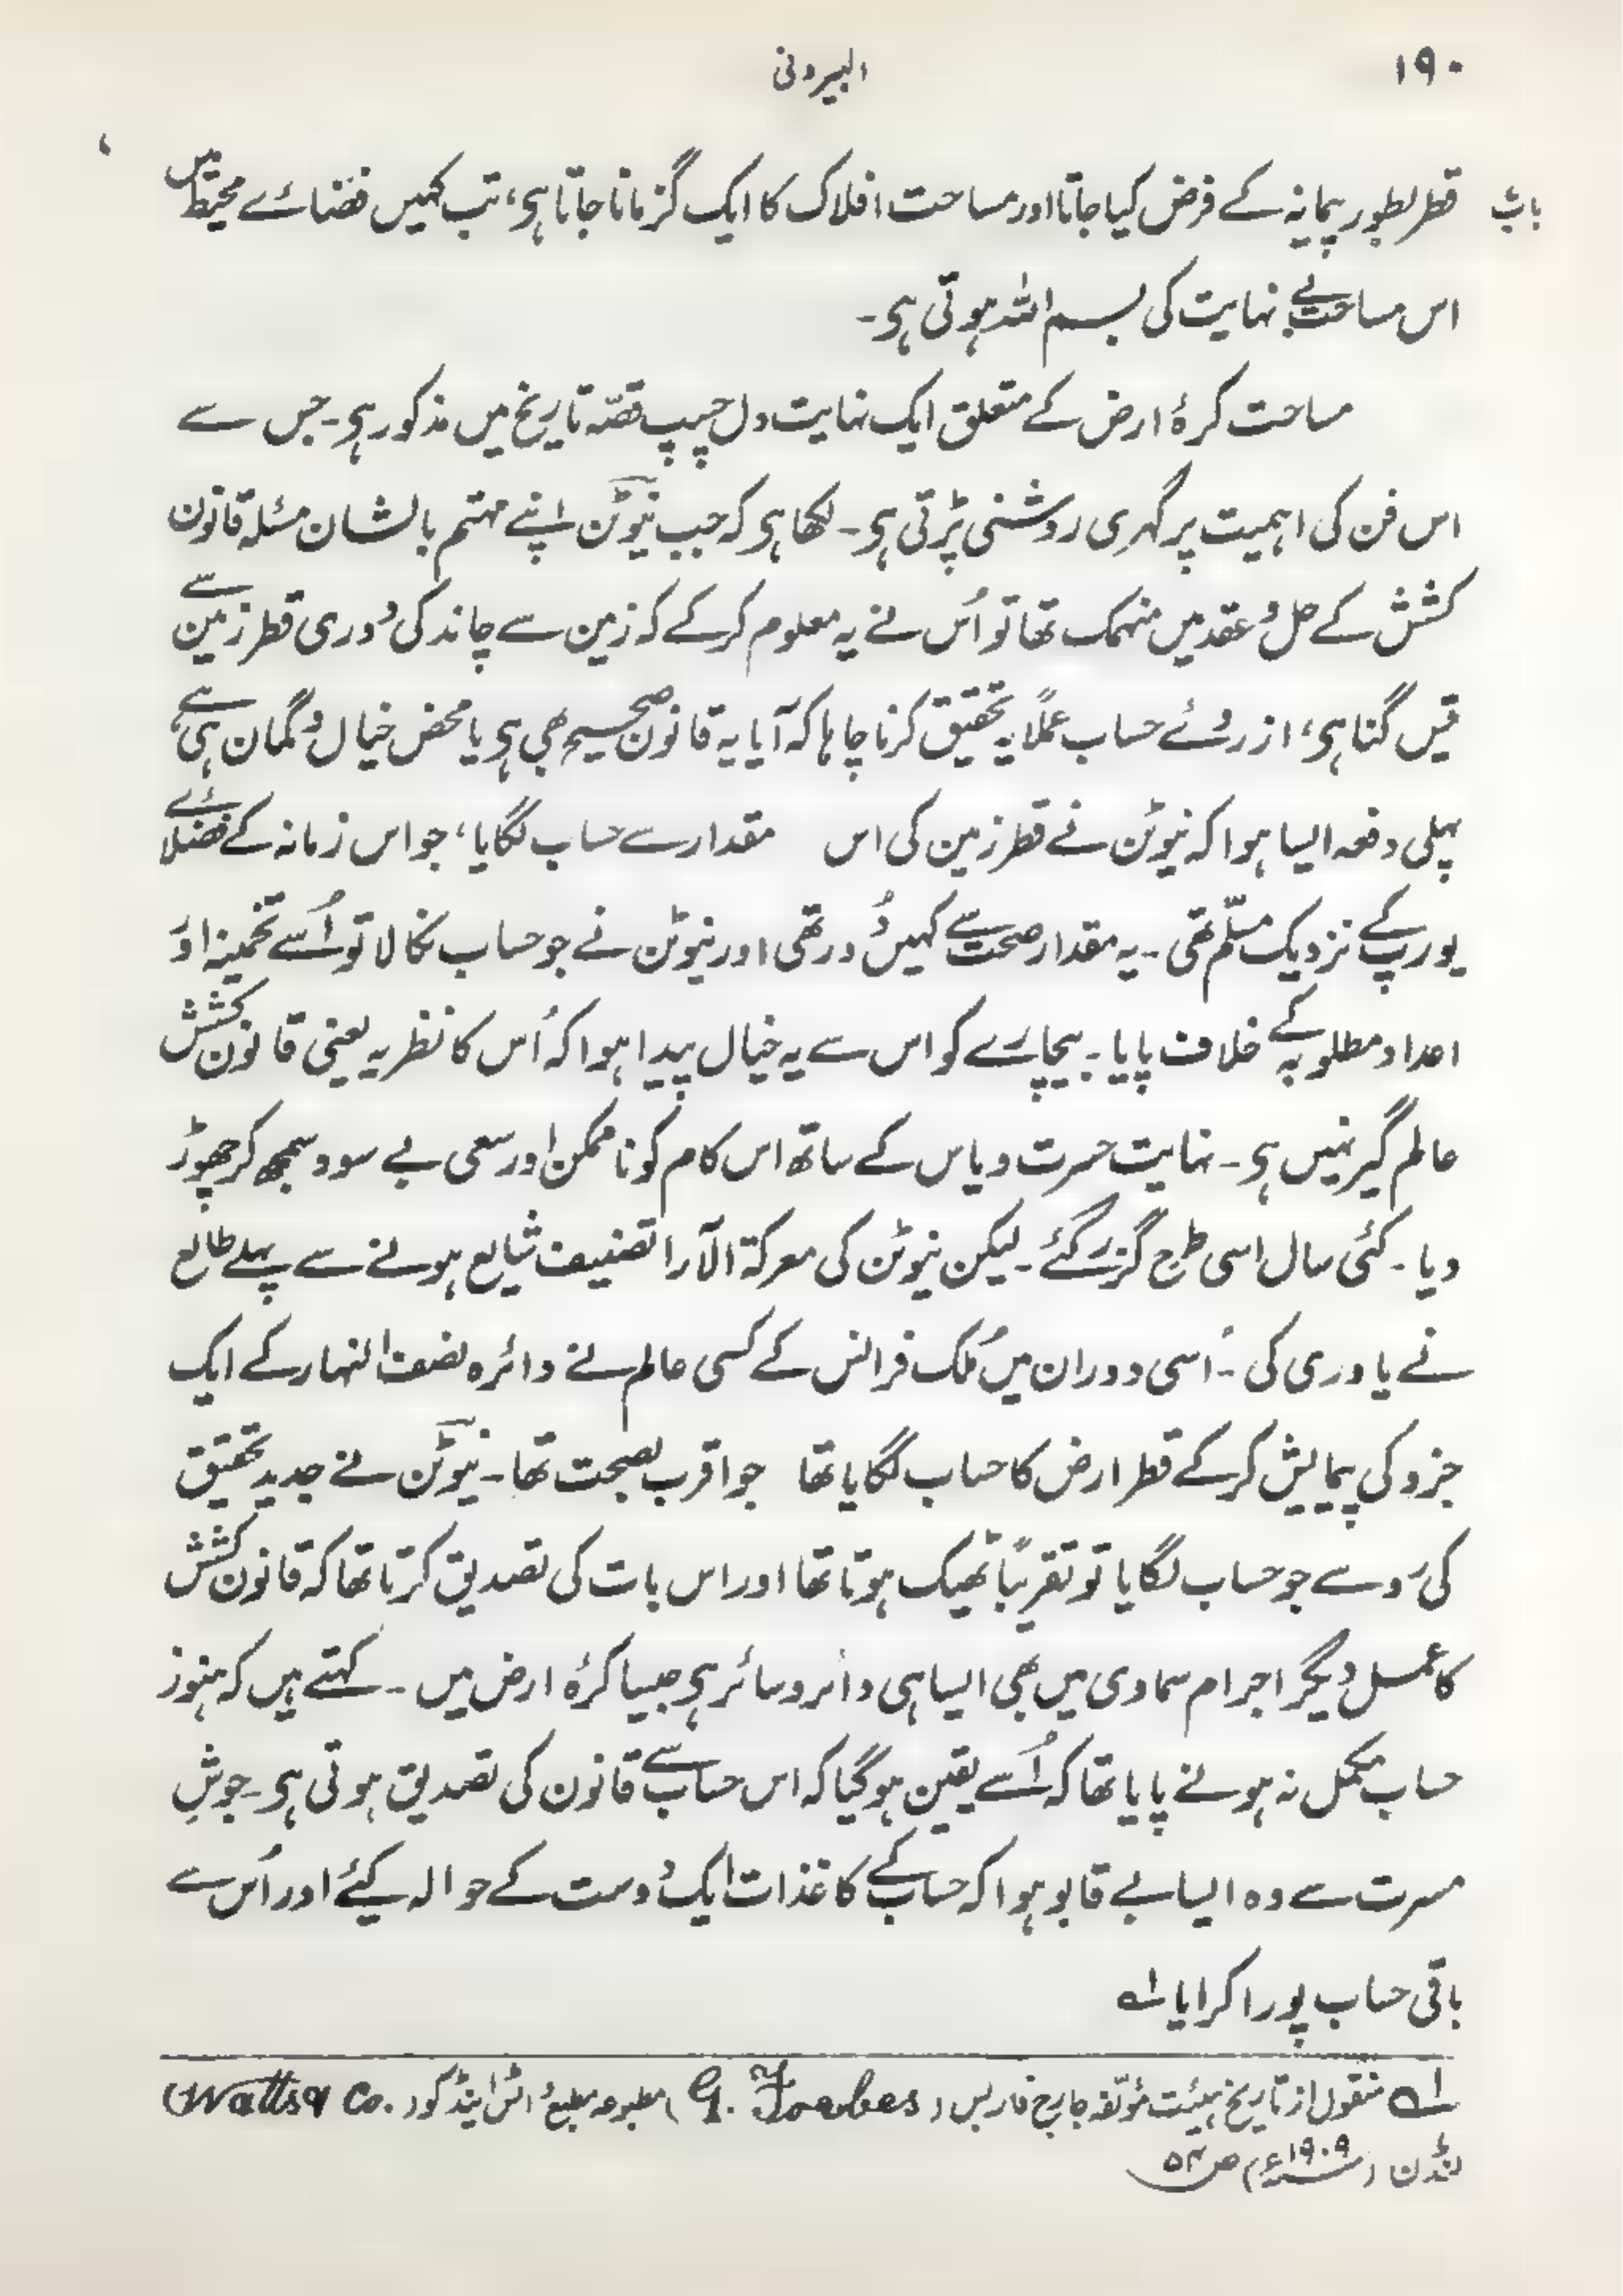 ۱۹۰
البیرونی
باب
قطر بطور پیمانہ کے فرض کیا جاتا اور مساحت افلاک کا ایک گز مانا جاتا ہی، تب کہیں فضائے محیط میں
اس مساحت بے نہایت کی بسم اللہ ہوتی ہی۔
مساحت کرۂ ارض کے متعلق ایک نہایت دل چسپ قصّہ تاریخ میں مذکور ہی۔ جس سے
اس فن کی اہمیت پر گہری روشنی پڑتی ہی۔ لکھا ہی کہ جب نیوٹن اپنے مہتم بالشان مسئلہ قانون
کشش کے حل و عقد میں منہمک تھا تو اُس نے یہ معلوم کرکے کہ زمین سے چاند کی دُوری قطر زمین سے
تیس گنا ہی، از روئے حساب عملاً یہ تحقیق کرنا چاہا کہ آیا یہ قانون صحیح بھی ہی یا محض خیال و گمان ہی ہے،
پہلی دفعہ ایسا ہوا کہ نیوٹن نے قطر زمین کی اس مقدار سے حساب لگایا، جو اس زمانہ کے فضلائے
یورپ کے نزدیک مسلّم تھی۔ یہ مقدار صحت سے کہیں دُور تھی اور نیوٹن نے جو حساب نکالا تو اُسے تخمینہ اور
اعداد مطلوبہ کے خلاف پایا۔ بیچارے کو اس سے یہ خیال پیدا ہوا کہ اُس کا نظریہ یعنی قانون کشش
عالم گیر نہیں ہی۔ نہایت حسرت و یاس کے ساتھ اس کام کو ناممکن اور سعی بے سود سمجھ کر چھوڑ
دیا۔ کئی سال اسی طرح گزر گئے۔ لیکن نیوٹن کی معرکۃ الآرا تصنیف شایع ہونے سے پہلے طالع
نے یاوری کی۔ اُسی دوران میں مُلک فرانس کے کسی عالم نے دائرہ نصف النہار کے ایک
جزو کی پیمایش کرکے قطر ارض کا حساب لگایا تھا جو اقرب بصحت تھا۔ نیوٹن نے جدید تحقیق
کی رُو سے جو حساب لگایا تو تقریباً ٹھیک ہوتا تھا اور اس بات کی تصدیق کرتا تھا کہ قانون کشش
کا عمل دیگر اجرام سماوی میں بھی ایسا ہی دائر و سائر ہی جیسا کرۂ ارض میں۔ کہتے ہیں کہ ہنوز
حساب مکمل نہ ہونے پایا تھا کہ اُسے یقین ہو گیا کہ اس حساب سے قانون کی تصدیق ہوتی ہی۔ جوشِ
مسرت سے وہ ایسا بے قابو ہوا کہ حساب کے کاغذات ایک دوست کے حوالہ کیئے اور اُس سے
باقی حساب پورا کرایا ؎۱
؎۱ منقول از تاریخ ہیئت مؤلفہ جارج فاربس (G. Forbes) مطبوعہ مطبع واٹس اینڈ کو (Watts & Co.
لنڈن (۱۹۰۹ء) ص ۵۴